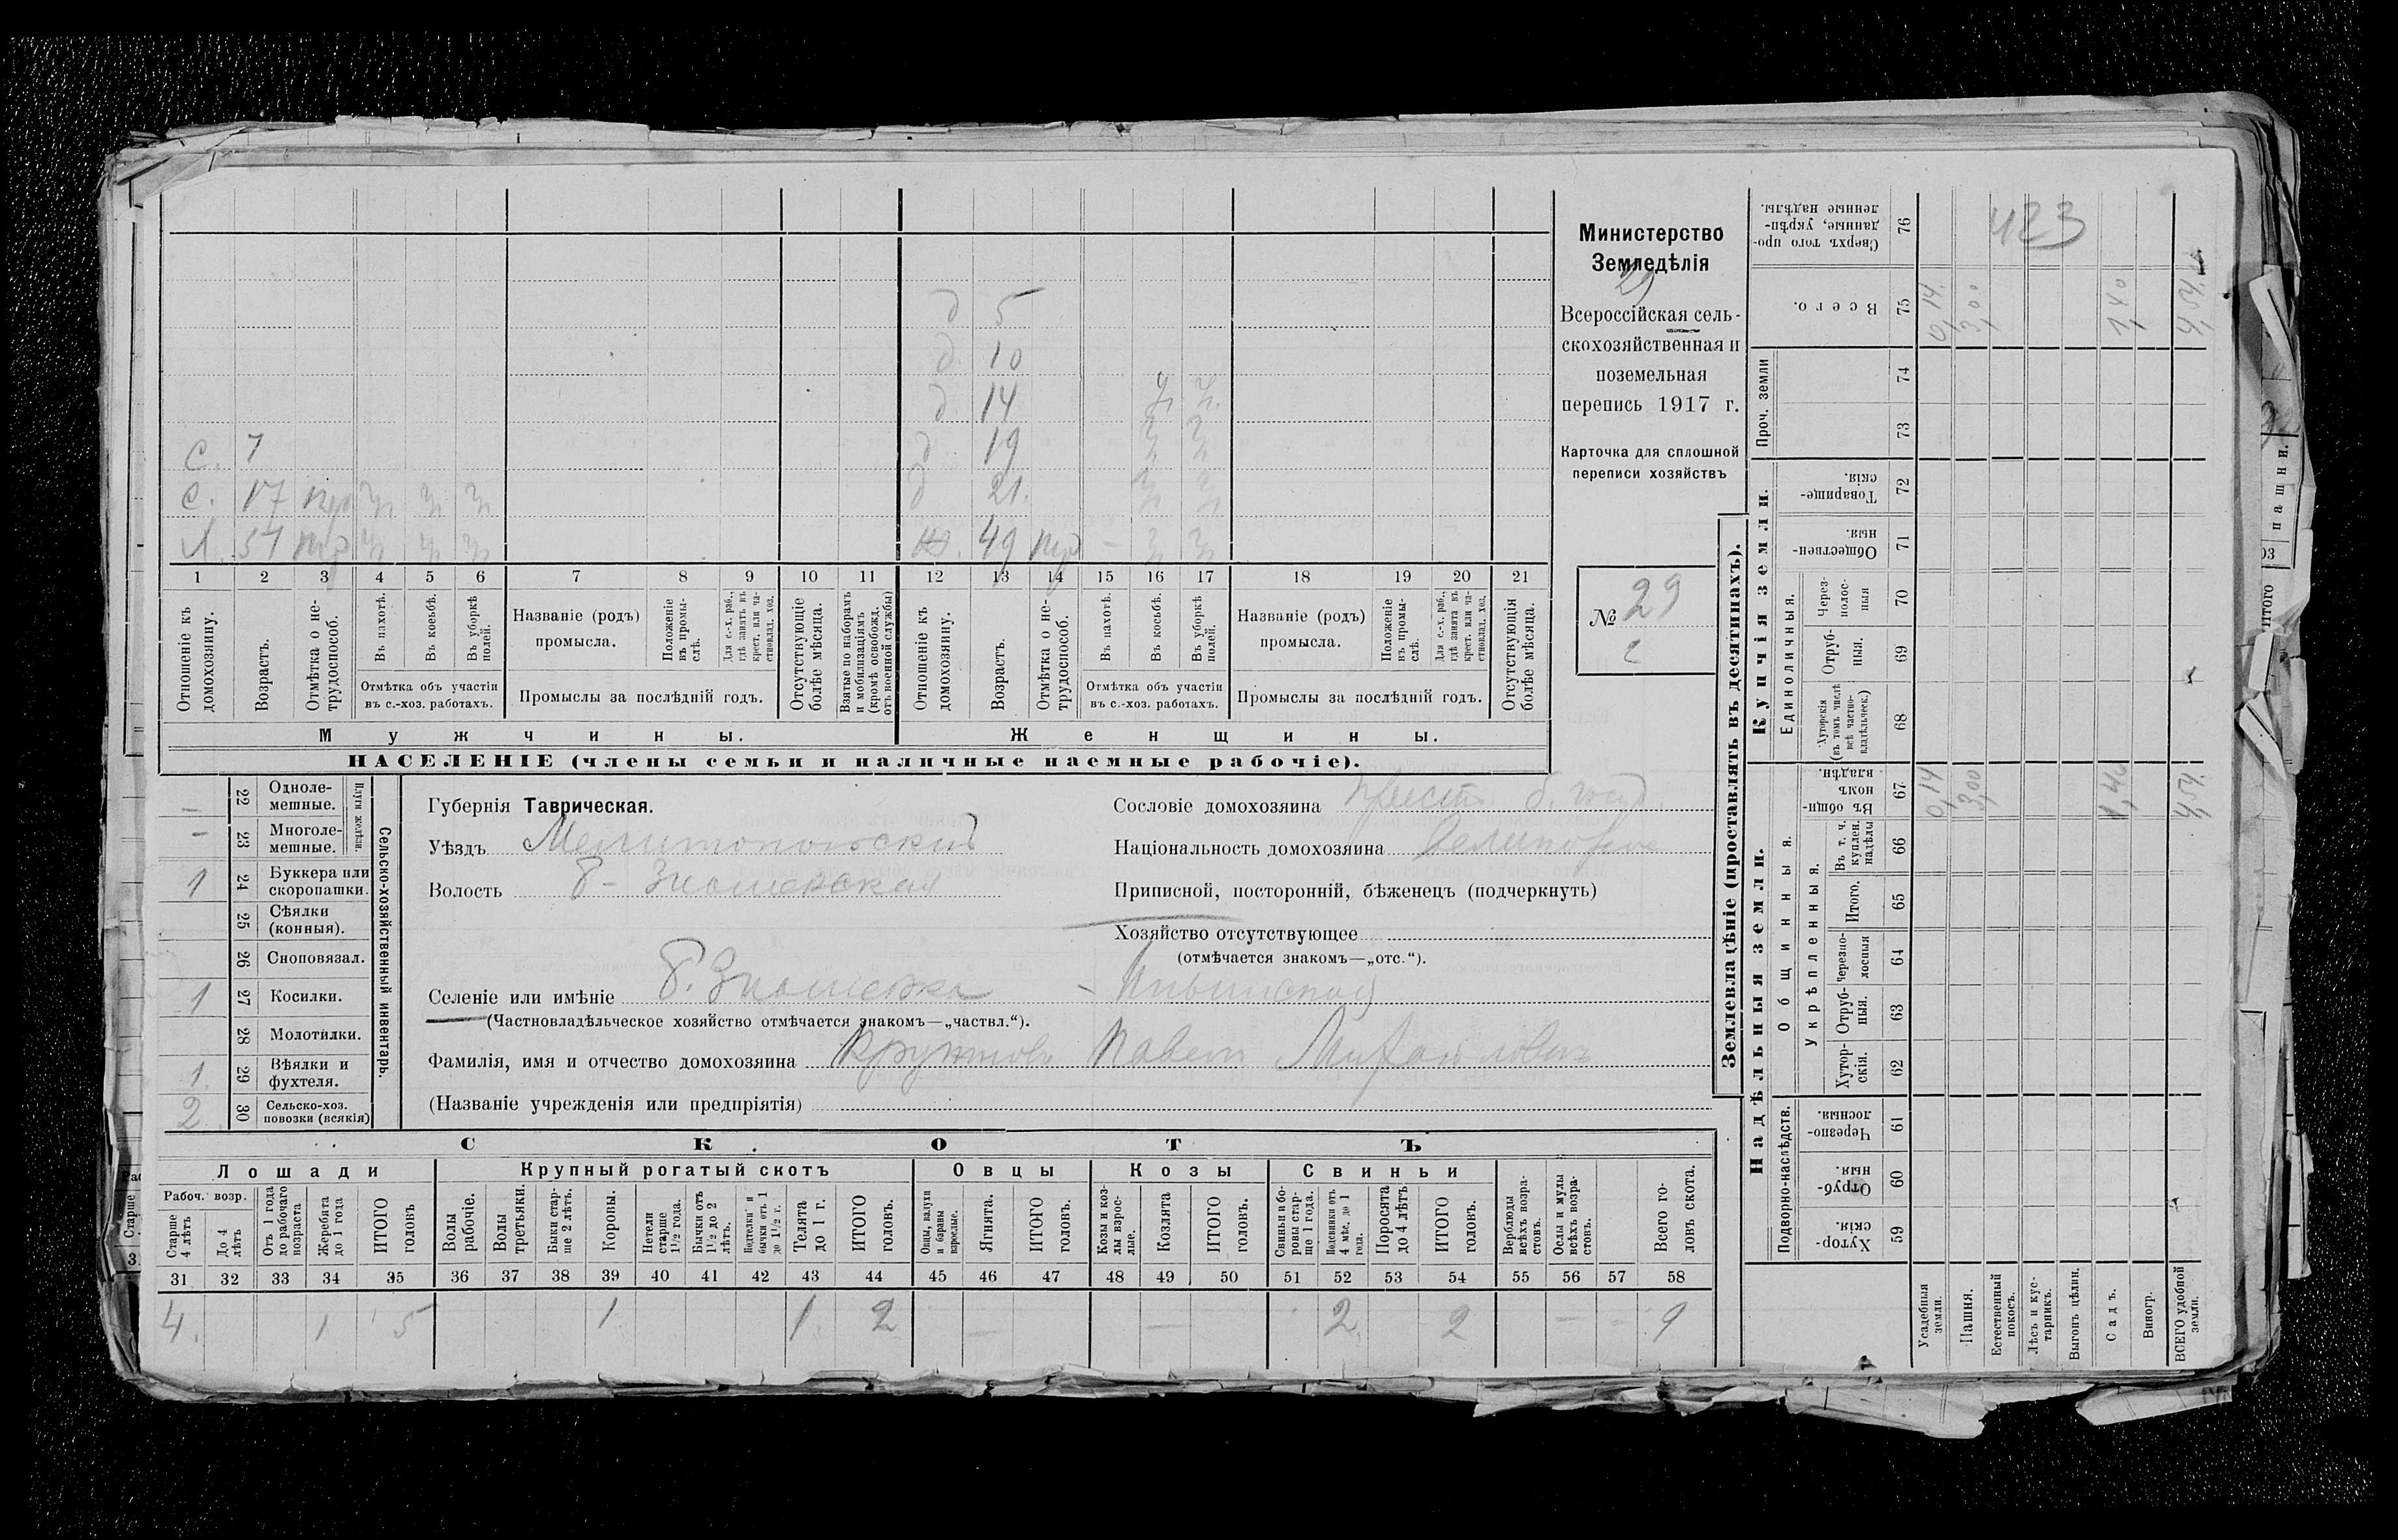 д 5
д. 10
д. 14 ч ч.
с. 7 д 19 ч ч
с. 17 ч ч ч д 21. ч ч
57 ч ч ч 49 - ч ч
1 2 3 4 5 6 7 8 9 10 11 12 13 14 15 16 17 18 19 20 21
Отношеніе къ домохозяину.
Возрастъ.
Отмѣтка о не-трудоспособ.
Въ пахотѣ.
Въ косьбѣ.
Въ уборкѣ полей.
Отмѣтка объ участіи
въ с.-хоз. работахъ.
Названіе (родъ)
промысла.
Положеніе въ промы-слѣ.
Для с.-х. раб., гдѣ занятъ въ крест. или ча-стновлад. хоз.
Промыслы за послѣдній годъ.
Отсутствующіе болѣе мѣсяца.
Взятые по наборамъ и мобилизаціямъ (кромѣ освобожд. отъ военной службы)
Отношеніе къ домохозяину.
Возрастъ.
Отмѣтка о не-трудоспособ.
Въ пахотѣ.
Въ косьбѣ.
Въ уборкѣ полей.
Отмѣтка объ участіи
въ с.-хоз. работахъ.
Названіе (родъ)
промысла.
Положеніе въ промы-слѣ.
Для с.-х. раб., гдѣ занята въ крест. или ча-стновлад. хоз.
Промыслы за послѣдній годъ.
Отсутствующія болѣе мѣсяца.
Мужчины. Женщины.
НАСЕЛЕНІЕ (члены семьи и наличные наемные рабочіе).
Министерство
Земледѣлія
29
Всероссійская сель-
скохозяйственная и
поземельная
перепись 1917 г.
Карточка для сплошной
переписи хозяйствъ
№ 29
2
Сельско-хозяйственный инвентарь.
Плуги желѣзн.
- 22 Одноле-мешные.
- 23 Многоле-мешные.
1 24 Буккера или скоропашки.
25 Сѣялки (конныя).
26 Сноповязал.
1 27 Косилки.
28 Молотилки.
1 29 Вѣялки и фухтеля.
2 30 Сельско-хоз. повозки (всякія)
Губернія Таврическая.
Уѣздъ Мелитопольскій
Волость Б-Знаменская
Селеніе или имѣніе Б. Знаменка
(Частновладѣльческое хозяйство отмѣчается знакомъ—„частвл.“).
Фамилія, имя и отчество домохозяина Павелъ Михайловичъ
(Названіе учрежденія или предпріятія)
Сословіе домохозяина Крест. б. госуд.
Національность домохозяина Великоросс
Приписной, посторонній, бѣженецъ (подчеркнуть)
Хозяйство отсутствующее
(отмѣчается знакомъ—„отс.“).
СКОТЪ
Лошади Крупный рогатый скотъ Овцы Козы Свиньи
Рабоч. возр.
Старше 4 лѣтъ
До 4 лѣтъ
Отъ 1 года до рабочаго возраста
Жеребята до 1 года
ИТОГО головъ
Волы рабочіе.
Волы третьяки.
Быки стар-ше 2 лѣтъ.
Коровы.
Нетели старше 1½ года.
Бычки отъ 1½ до 2 лѣтъ.
Подтелки и бычки отъ 1 до 1½ г.
Телята до 1 г.
ИТОГО головъ.
Овцы, валухи и бараны взрослые.
Ягнята.
ИТОГО головъ.
Козы и коз-лы взрос-лые.
Козлята
ИТОГО головъ.
Свиньи и бо-ровы стар-ше 1 года.
Подсвинки отъ 4 мѣс. до 1 года.
Поросята до 4 лѣтъ
ИТОГО головъ.
Верблюды всѣхъ возра-стовъ.
Ослы и мулы всѣхъ возра-стовъ.
Всего го-ловъ скота.
31 32 33 34 35 36 37 38 39 40 41 42 43 44 45 46 47 48 49 50 51 52 53 54 55 56 57 58
4. 1 5 1 1 2 — — 2 2 — - 9
Землевладѣніе (проставлять въ десятинахъ).
Надѣльныя земли. Купчія земли. Проч. земли
Подворно-наслѣдств.
Общинныя.
Укрѣпленныя.
Единоличныя.
Хутор-скія. 59
Отруб-ныя. 60
Черезпо-лосныя. 61
Хутор-скія. 62
Отруб-ныя. 63
Черезпо-лосныя 64
Итого. 65
Въ т. ч. куплен. надѣлы 66
Въ общи-номъ владѣн. 67
Хуторскія (въ томъ числѣ всѣ частно-владѣльческ.) 68
Отруб-ныя. 69
Через-полос-ныя 70
Обществен-ныя. 71
Товарище-скія. 72
73
74
Всего. 75
Сверхъ того про-данные, укрѣп-ленные надѣлы. 76
423
Усадебныя земли. 0,14 0,14.
Пашня. 3,00 3,00
Естественный покосъ.
Лѣсъ и кус-тарникъ.
Выгонъ цѣлин.
Садъ. 1,40 1,40
Виногр.
ВСЕГО удобной земли. 4,54. 4,54.
пашни.
ИТОГО
Старше